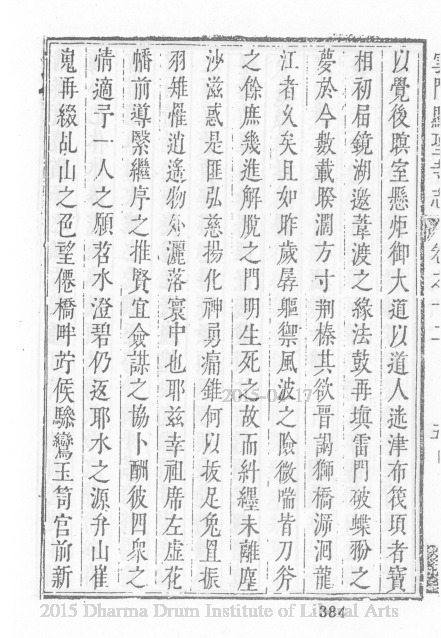 以覺後暝室懸炬御大道以道人迷津布筏項者寶
相初屆鏡湖邀葦渡之緣法鼓再填雷門破蝶粉之
夢於今數載暌濶方寸荆榛其欲晉謁獅橋溯洄龍
江者久矣且如昨歲孱軀禦風波之險微喘皆刀斧
之餘庶幾進解脫之門明生死之故而糾纆未離塵
沙滋惑是匪弘慈揚化神勇痛錐何以拔足兔罝振
羽雉罹逍遙物外灑落寰中也耶兹幸祖席左虛花
幡前導繄繼序之推賢宜僉謀之協卜酬彼四衆之
情適予一人之願苕水澄碧仍返耶水之源弁山崔
嵬再綴乩山之色望僊橋畔竚候驂鸞玉笥宮前新
雲門顯聖寺志 卷之十二 五
2015-04-17
384
2015 Dharma Drum Institute of Liberal Arts